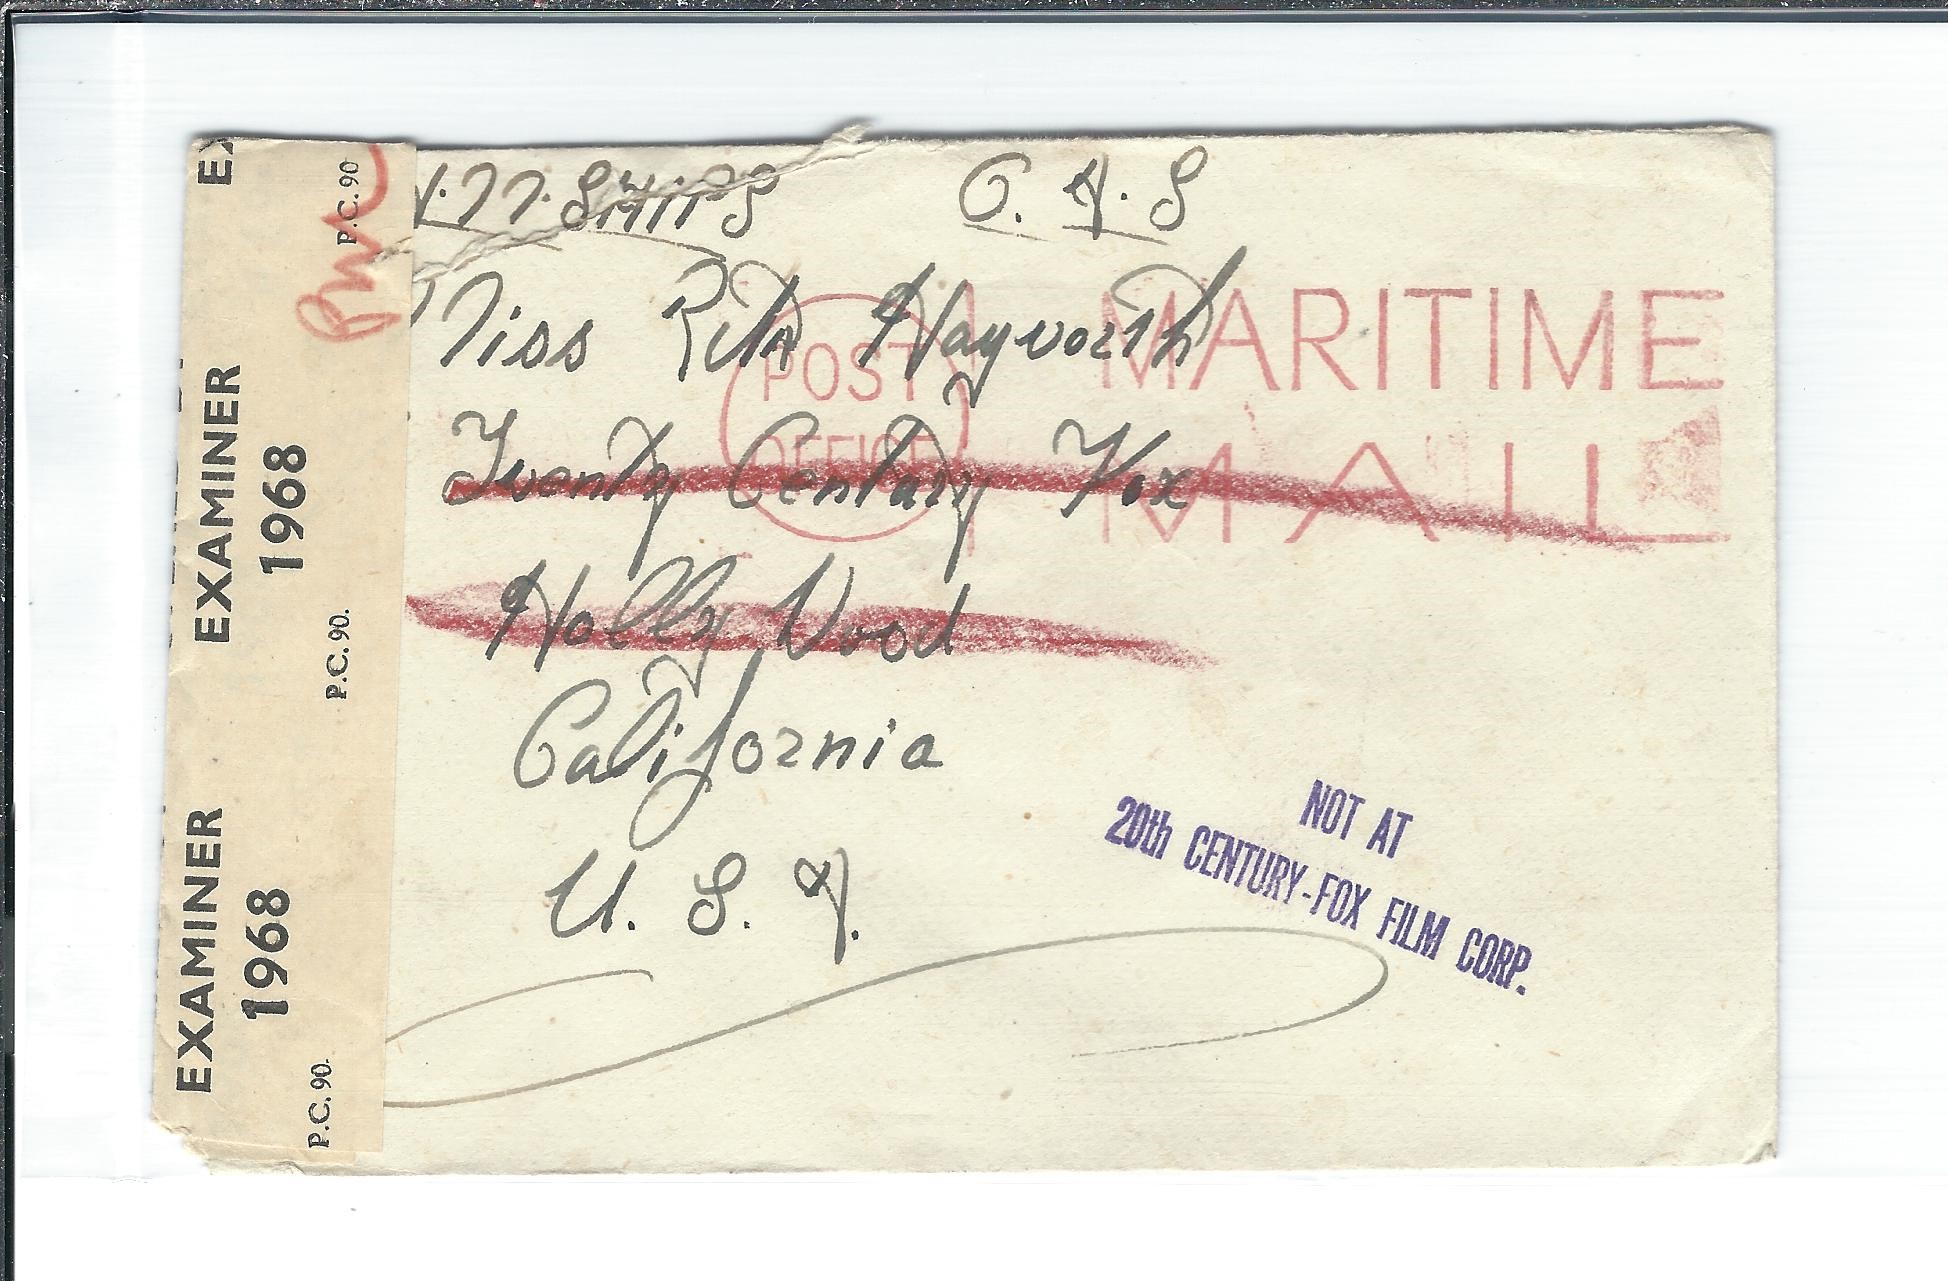 H.M. SHIPS O.A.S
Miss Rita Hayworth
Twenty Century Fox
Holly Wood
California
U.S.A.
POST
OFFICE
MARITIME
MAIL
NOT AT
20th CENTURY-FOX FILM CORP.
P.C. 90
EXAMINER
1968
P.C. 90.
EXAMINER
1968
P.C. 90.